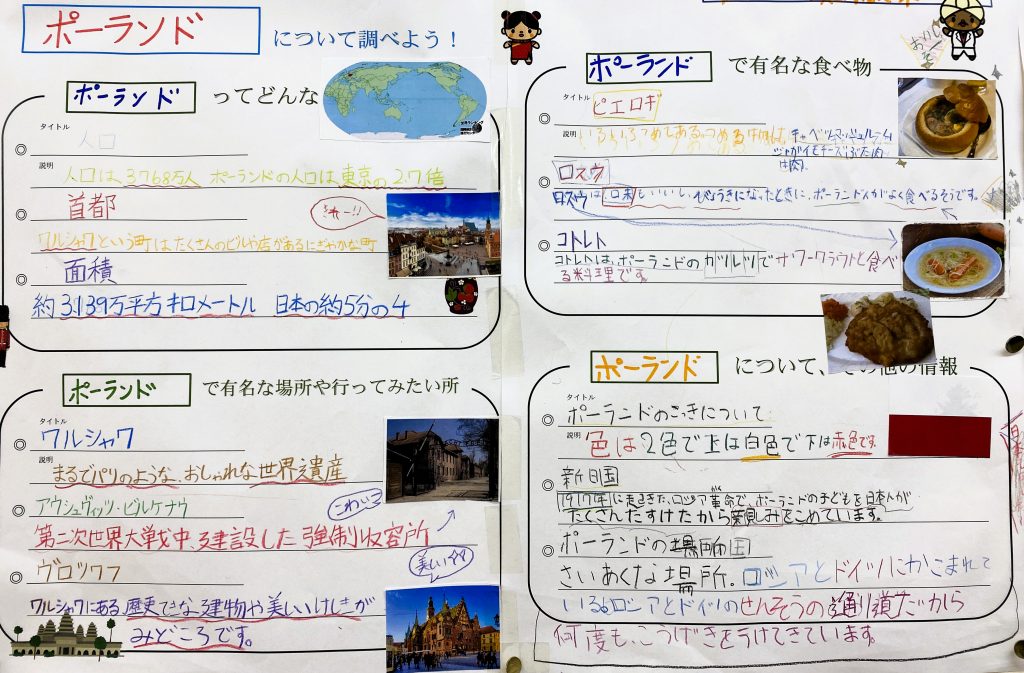 ポーランド について調べよう!
ポーランド ってどんな
タイトル
人口
説明
人口は、3768万人 ポーランドの人口は東京の2.7倍
首都
きれー!!
ワルシャワという町は、たくさんのビルや店があるにぎやかな町
面積
約3139万平方キロメートル 日本の約5分の4
ポーランド で有名な場所や行ってみたい所
タイトル
ワルシャワ
説明
まるでパリのような、おしゃれな世界遺産
アウシュヴィッツ・ビルケナウ
こわい
第二次世界大戦中、建設した強制収容所
ヴロツワフ
美しい
ワルシャワにある、歴史てきな建物や美しいけしきが
みどころです。
ポーランド で有名な食べ物
おいしそー
タイトル
ピエロギ
説明
いろいろつめしある。つめる中側は、キャベツ、マッシュルーム
ジャガイモ チーズ ぶた肉
ロスウ
ロスウは日本もいいし、びょうきになったときに、ポーランド人がよく食べるそうです。
コトレト
コトレトは、ポーランドのカツレツでサワークラウトと食べ
る料理です。
ポーランド について、その他の情報
タイトル
ポーランドのこっきについて
説明
色は2色で上は白色で下は赤色です。
新日国
1917年に起きた、ロシア革命で、ポーランドの子どもを日本人が
たくさんたすけたから親しみをこめています。
ポーランドの場所
さいあくな場所。ロシアとドイツにかこまれて
いる。ロシアとドイツのせんそうの通り道だから
何度も、こうげきをうけてきています。